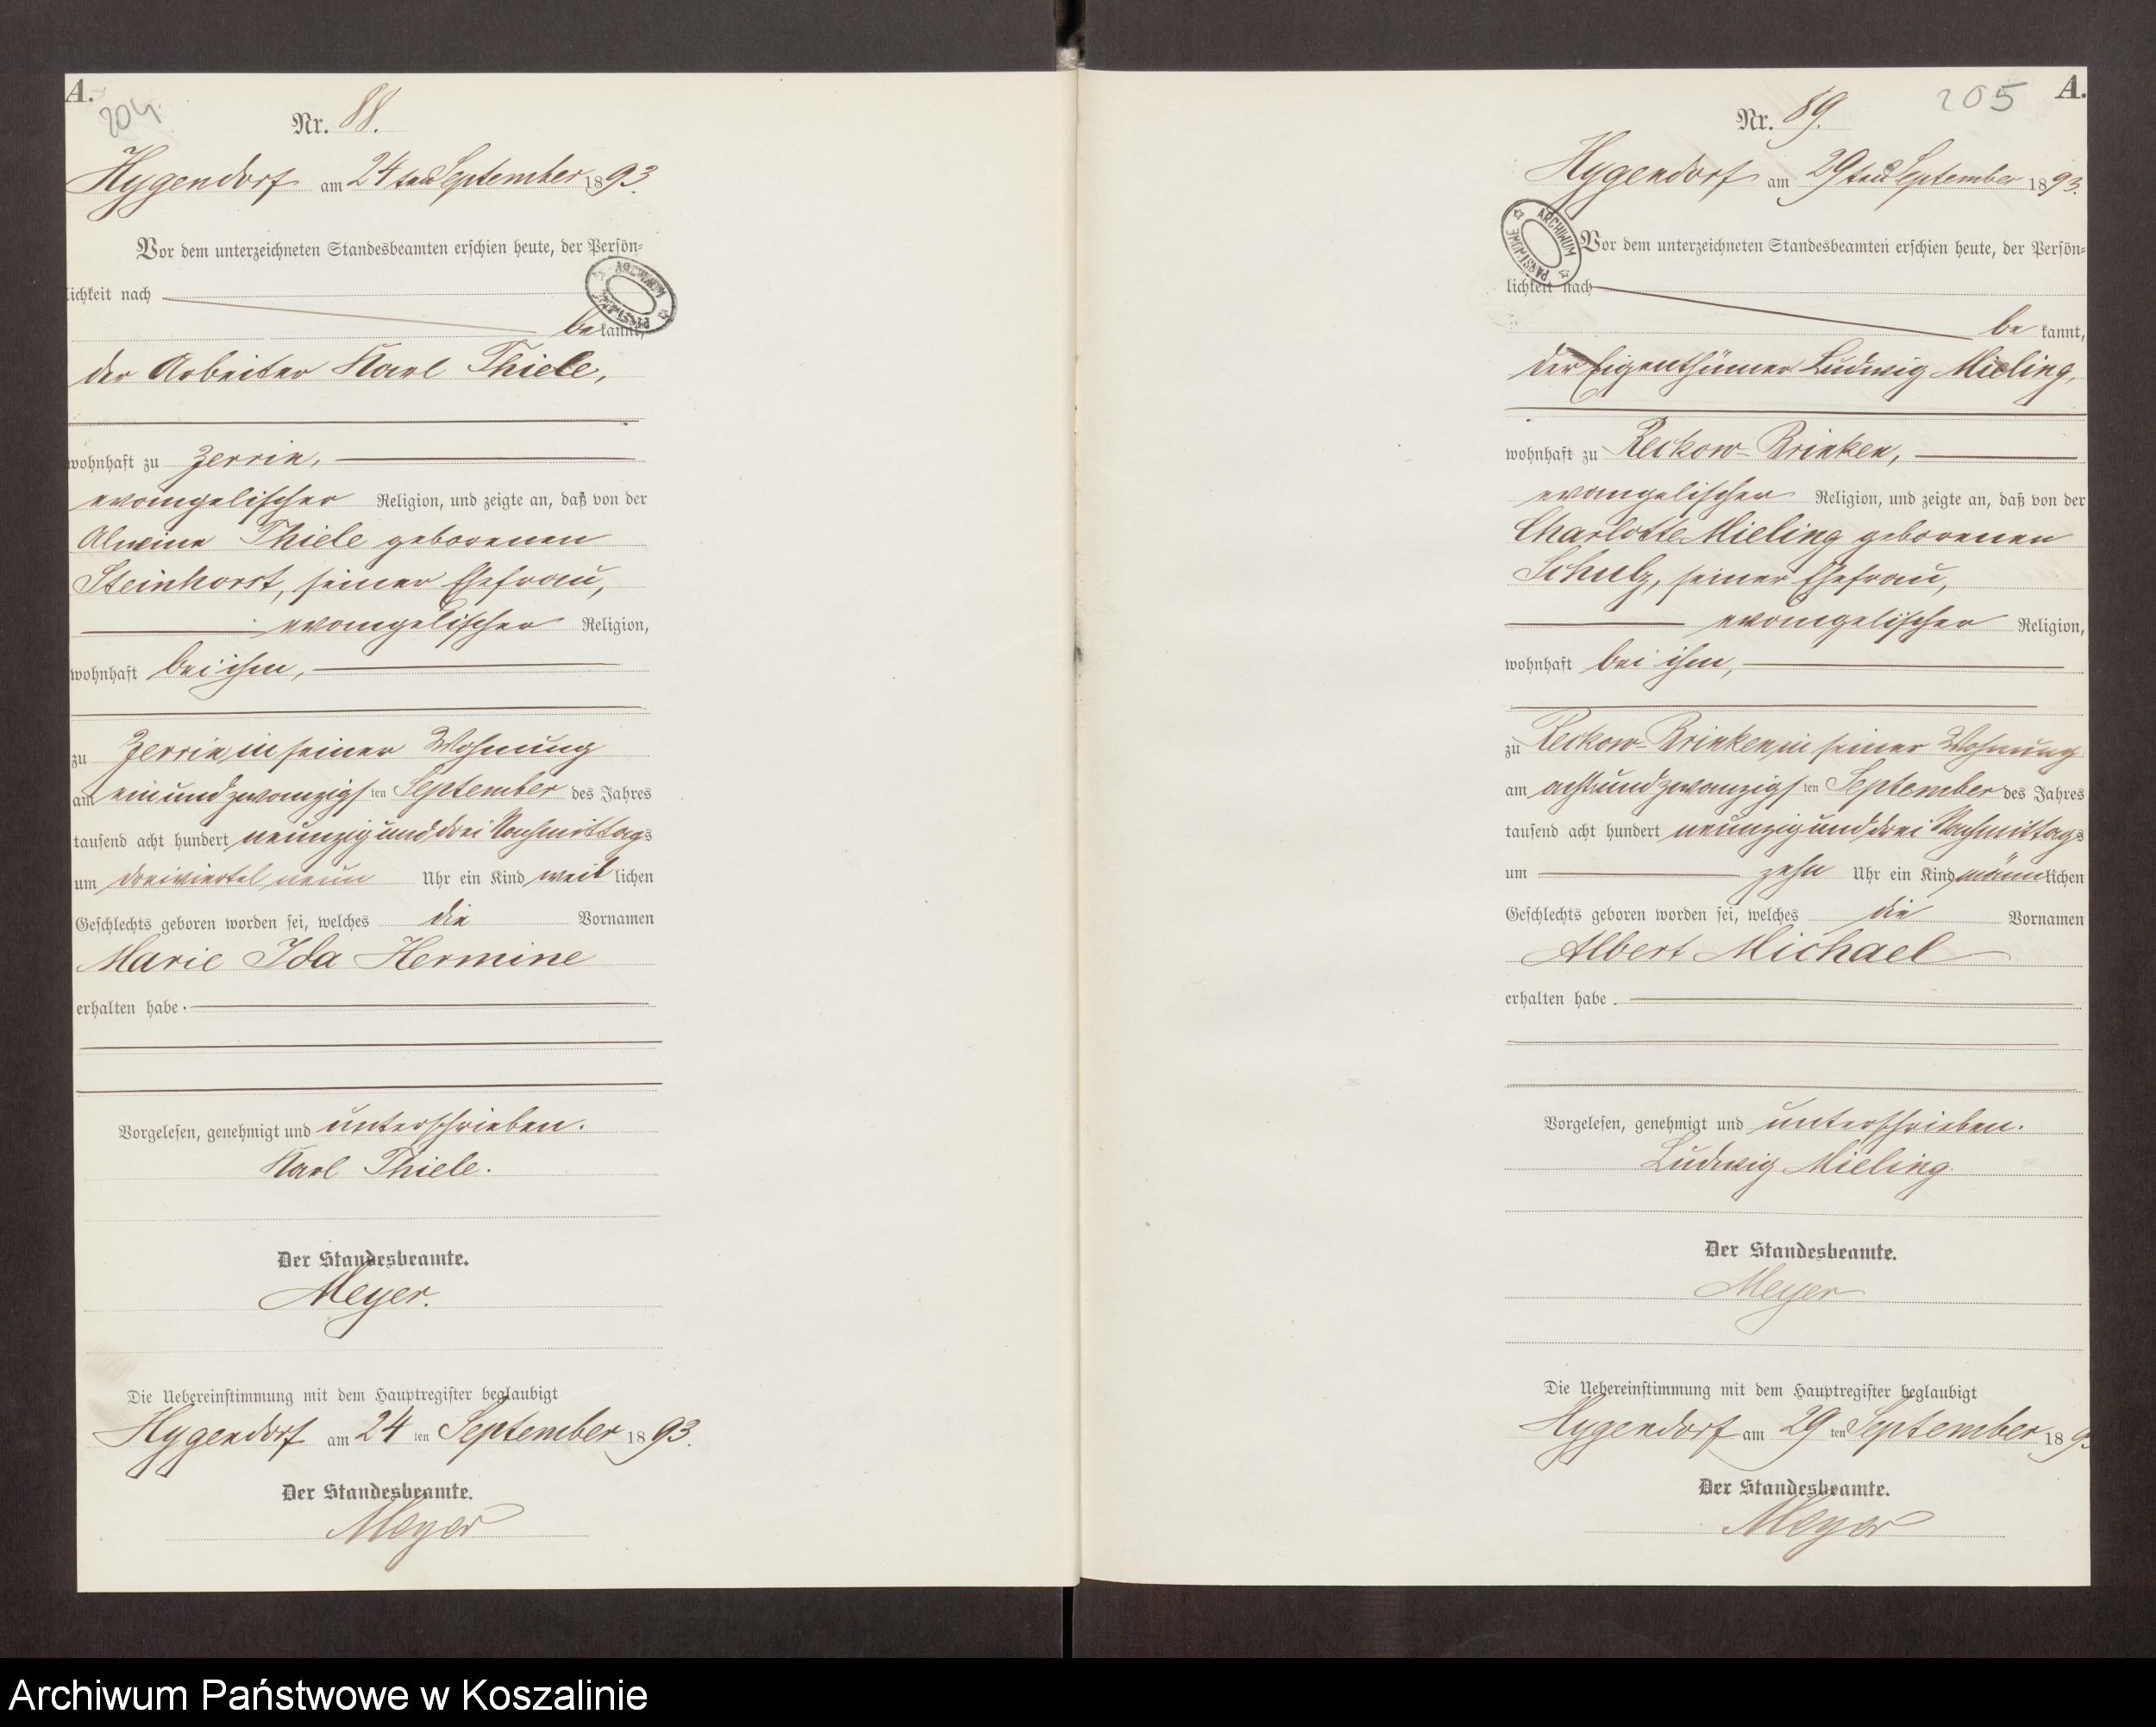 A.
204.
Nr. 88.
Hygendorf am 24ten September 1893.
Vor dem unterzeichneten Standesbeamten erschien heute, der Persön=
lichkeit nach
bekannt,
der Arbeiter Karl Thiele,
wohnhaft zu Zerrin,
evangelischer Religion, und zeigte an, daß von der
Alwine Thiele geborenen
Steinhorst, seiner Ehefrau,
evangelischer Religion,
wohnhaft bei ihm,
zu Zerrin, in seiner Wohnung
am einundzwanzigsten September des Jahres
tausend acht hundert neunzig und drei Nachmittags
um dreiviertel neun Uhr ein Kind weiblichen
Geschlechts geboren worden sei, welches die Vornamen
Marie Ida Hermine
erhalten habe.
Vorgelesen, genehmigt und unterschrieben.
Karl Thiele.
Der Standesbeamte.
Meyer.
Die Uebereinstimmung mit dem Hauptregister beglaubigt
Hygendorf am 24 ten September 1893.
Der Standesbeamte.
Meyer
A.
205
Nr. 89.
Hygendorf am 29ten September 1893.
ARCHIWUM PAŃSTWOWE
Vor dem unterzeichneten Standesbeamten erschien heute, der Persön=
lichkeit nach
bekannt,
der Eigenthümer Ludwig Mieling,
wohnhaft zu Reckow-Brinken,
evangelischer Religion, und zeigte an, daß von der
Charlotte Mieling geborenen
Schulz, seiner Ehefrau,
evangelischer Religion,
wohnhaft bei ihm,
zu Reckow-Brinken, in seiner Wohnung
am achtundzwanzigsten September des Jahres
tausend acht hundert neunzig und drei Nachmittags
um zehn Uhr ein Kind männlichen
Geschlechts geboren worden sei, welches die Vornamen
Albert Michael
erhalten habe.
Vorgelesen, genehmigt und unterschrieben.
Ludwig Mieling
Der Standesbeamte.
Meyer
Die Uebereinstimmung mit dem Hauptregister beglaubigt
Hygendorf am 29 ten September 189
Der Standesbeamte.
Meyer
Archiwum Państwowe w Koszalinie